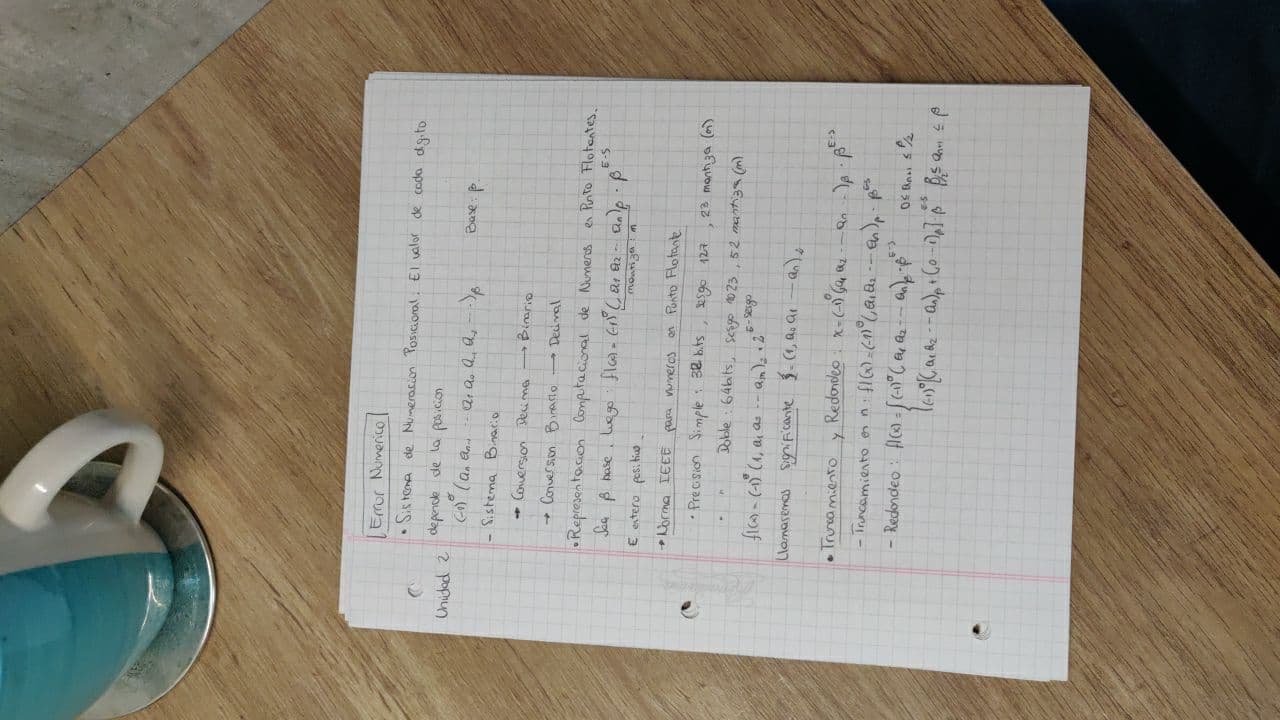 Error Numerico
• Sistema de Numeracion Posicional. El valor de cada digito
Unidad 2
depende de la posicion
(-1)^σ (an an-1 -- a1 a0 a-1 a-2 ---)β Base: β.
- Sistema Binario
→ Conversion Decima → Binario
→ Conversion Binario → Decimal
• Representacion Computacional de Numeros en Punto Flotantes.
Sea β base. Luego: fl(x) = (-1)^σ (, a1 a2 -- an)β · β^E-S
mantiza: n
E entero positivo.
→ Norma IEEE para numeros en Punto Flotante
• Precision Simple: 32 bits, sesgo 127, 23 mantiza (m)
• " Doble: 64bits, sesgo 1023, 52 mantiza (m)
fl(x) = (-1)^σ (1, a1 a2 -- am)2 · 2^E-sesgo
Llamaremos significante = (1, a0 a1 -- an)2
• Truncamiento y Redondeo: x=(-1)^σ (, a1 a2 -- an --)β · β^E-S
- Truncamiento en n: fl(x) = (-1)^σ (, a1 a2 -- an)β · β^E-S
- Redondeo: fl(x) = { (-1)^σ (, a1 a2 -- an)β · β^E-S 0 ≤ an+1 ≤ β/2
(-1)^σ [(, a1 a2 -- an)β + (,0 -- 1)β] · β^E-S β/2 ≤ an+1 ≤ β